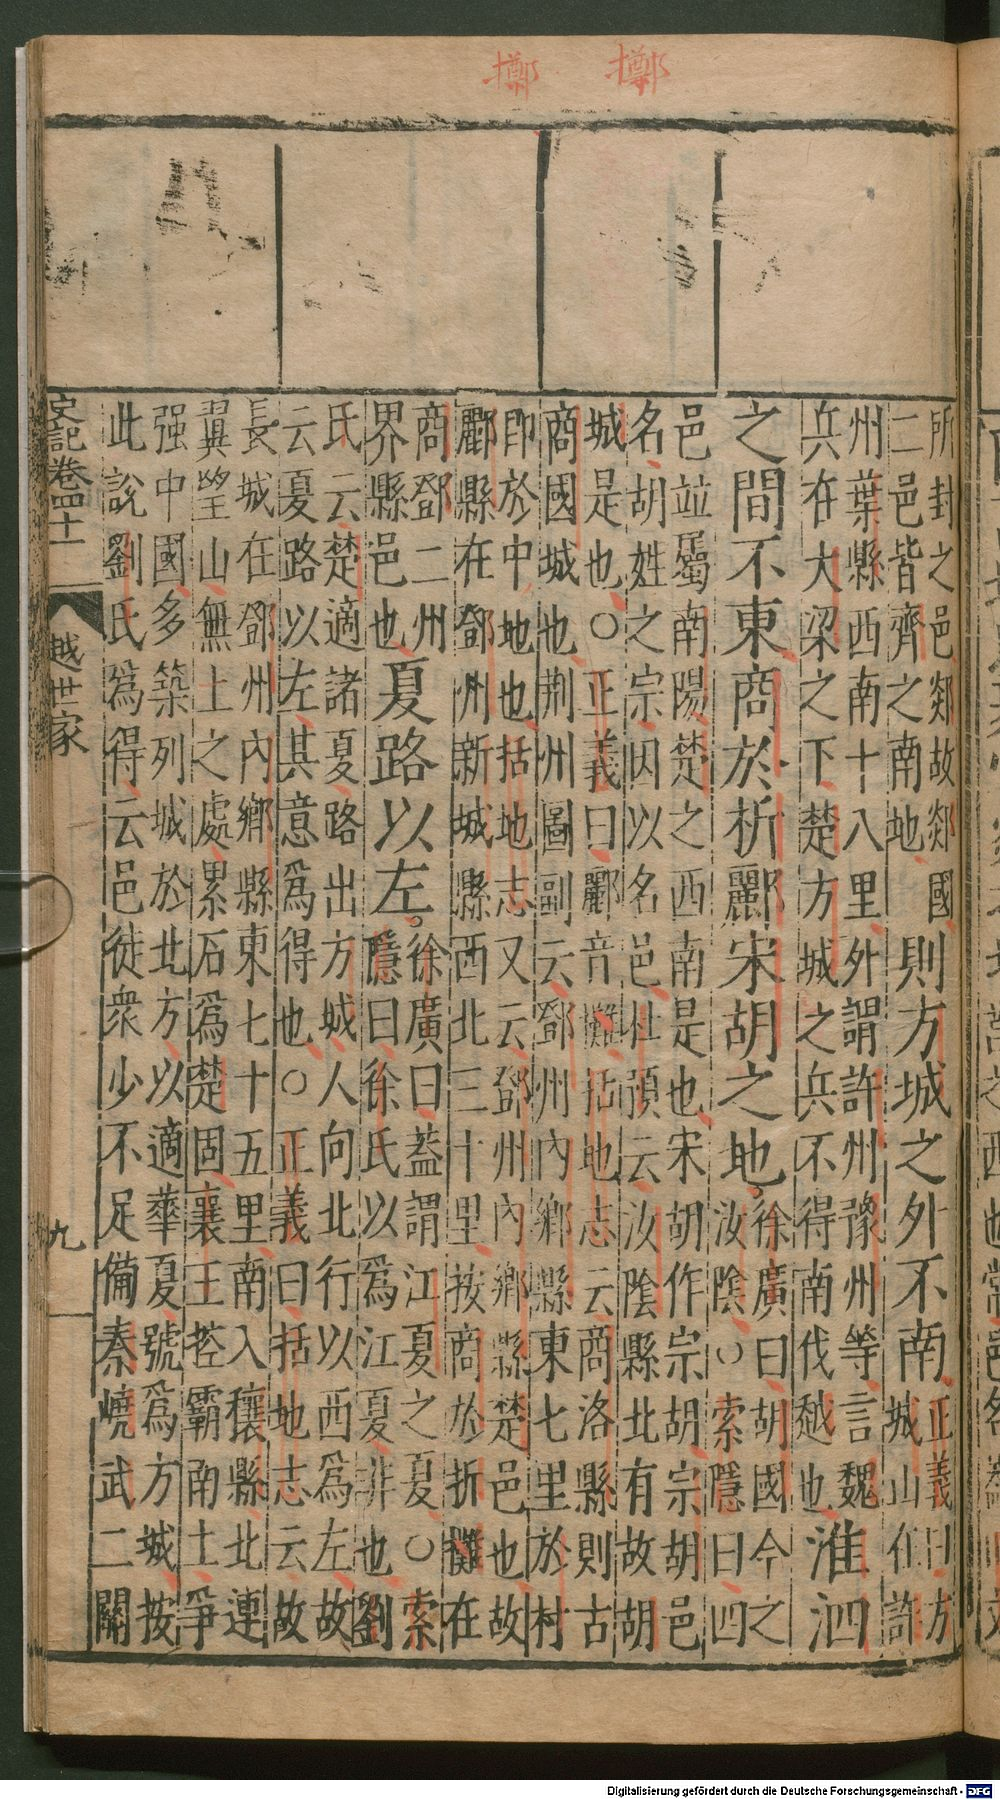 擲 擲
所封之邑郯故郯國
二邑皆齊之南地
則方城之外不南
正義曰方
城山在許
州葉縣西南十八里外謂許州豫州等言魏
兵在大梁之下楚方城之兵不得南伐越也
淮泗
之間不東商於析酈宋胡之地
徐廣曰胡國今之
汝陰○索隱曰四
邑竝屬南陽楚之西南是也宋胡作宗胡宗胡邑
名胡姓之宗因以名邑杜預云汝陰縣北有故胡
城是也○正義曰酈音攡括地志云商洛縣則古
商國城也荆州圖副云鄧州內鄉縣東七里於村
即於中地也括地志又云鄧州內鄉縣楚邑也故
酈縣在鄧州新城縣西北三十里按商於折攡在
商鄧二州
界縣邑也
夏路以左
徐廣曰蓋謂江夏之夏○索
隱曰徐氏以爲江夏非也劉
氏云楚適諸夏路出方城人向北行以西爲左故
云夏路以左其意爲得也○正義曰括地志云故
長城在鄧州內鄉縣東七十五里南入穰縣北連
翼望山無土之處累石爲楚固襄王控霸南土爭
强中國多築列城於北方以適華夏號爲方城按
此說劉氏爲得云邑徒衆少不足備秦嶢武二關
史記卷四十一 越世家 九
Digitalisierung gefördert durch die Deutsche Forschungsgemeinschaft - DFG